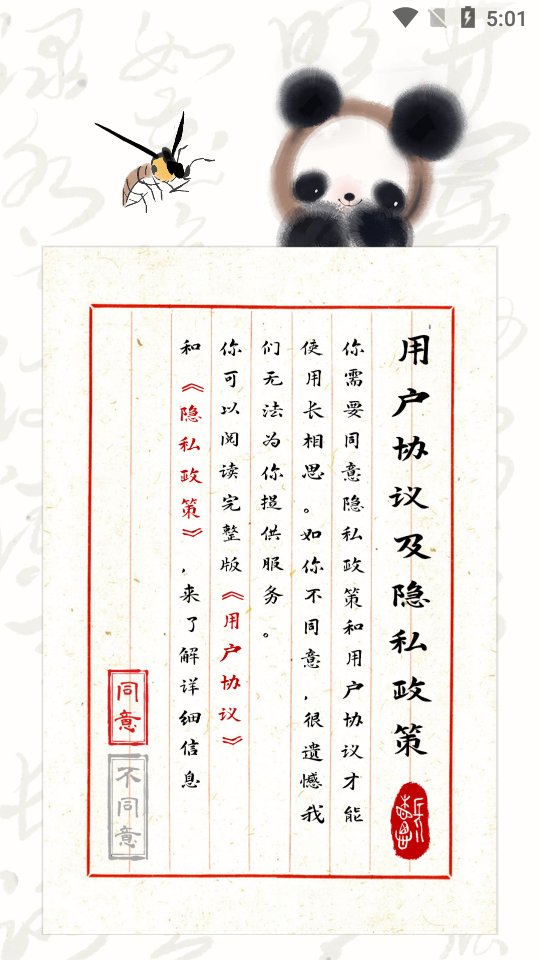 5:01
用户协议及隐私政策
你需要同意隐私政策和用户协议才能
使用长相思。如你不同意，很遗憾我
们无法为你提供服务。
你可以阅读完整版《用户协议》
和《隐私政策》，来了解详细信息
同意
不同意